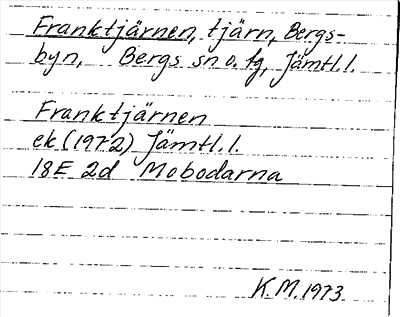 Franktjärnen, tjärn, Bergs-
byn, Bergs sn o. tg, Jämtl. l.
Franktjärnen
ek (1972) Jämtl. l.
18E 2d Mobodarna
K.M. 1973